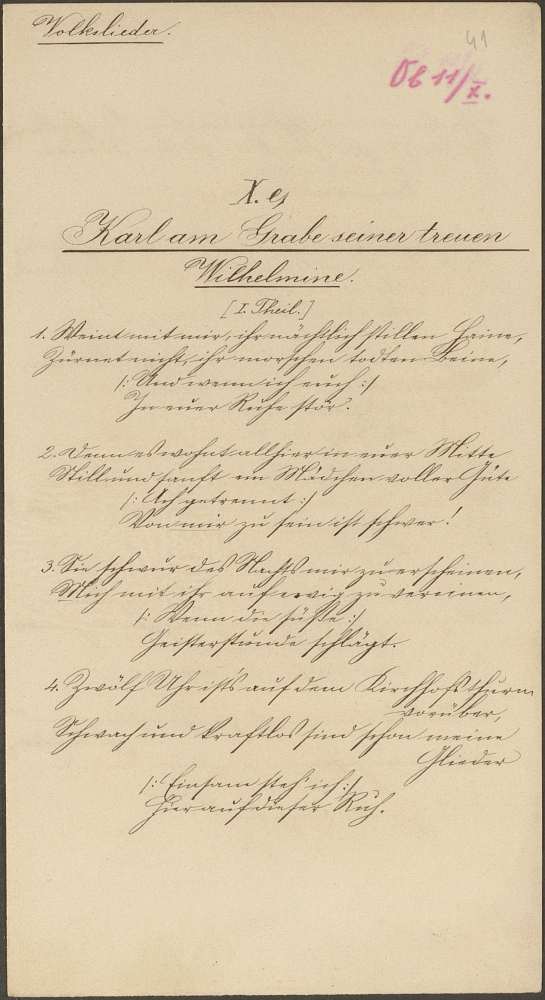 Volkslieder.
41
Ob 11/X.
X. c,
Karl am Grabe seiner treuen
Wilhelmine.
[I. Theil.]
1. Weint mit mir, ihr nächtlich stillen Haine,
Zürnet nicht, ihr morschen todten Beine,
/: Und wenn ich euch :/
In euer Ruhe stör'.
2. Denn es wohnt allhier in euer Mitte
Still und sanft ein Mädchen voller Güte
/: Ach getrennt :/
Von mir zu sein ist schwer!
3. Sie schwur des Nachts mir zu erscheinen,
Mich mit ihr auf ewig zu vereinen,
/: Wenn die süße :/
Geisterstunde schlägt.
4. Zwölf Uhr ist's auf dem Kirchhofsthurm
vorüber,
Schwach und kraftlos sind schon meine
Glieder
/: Einsam steh' ich :/
Hier auf dieser Ruh.